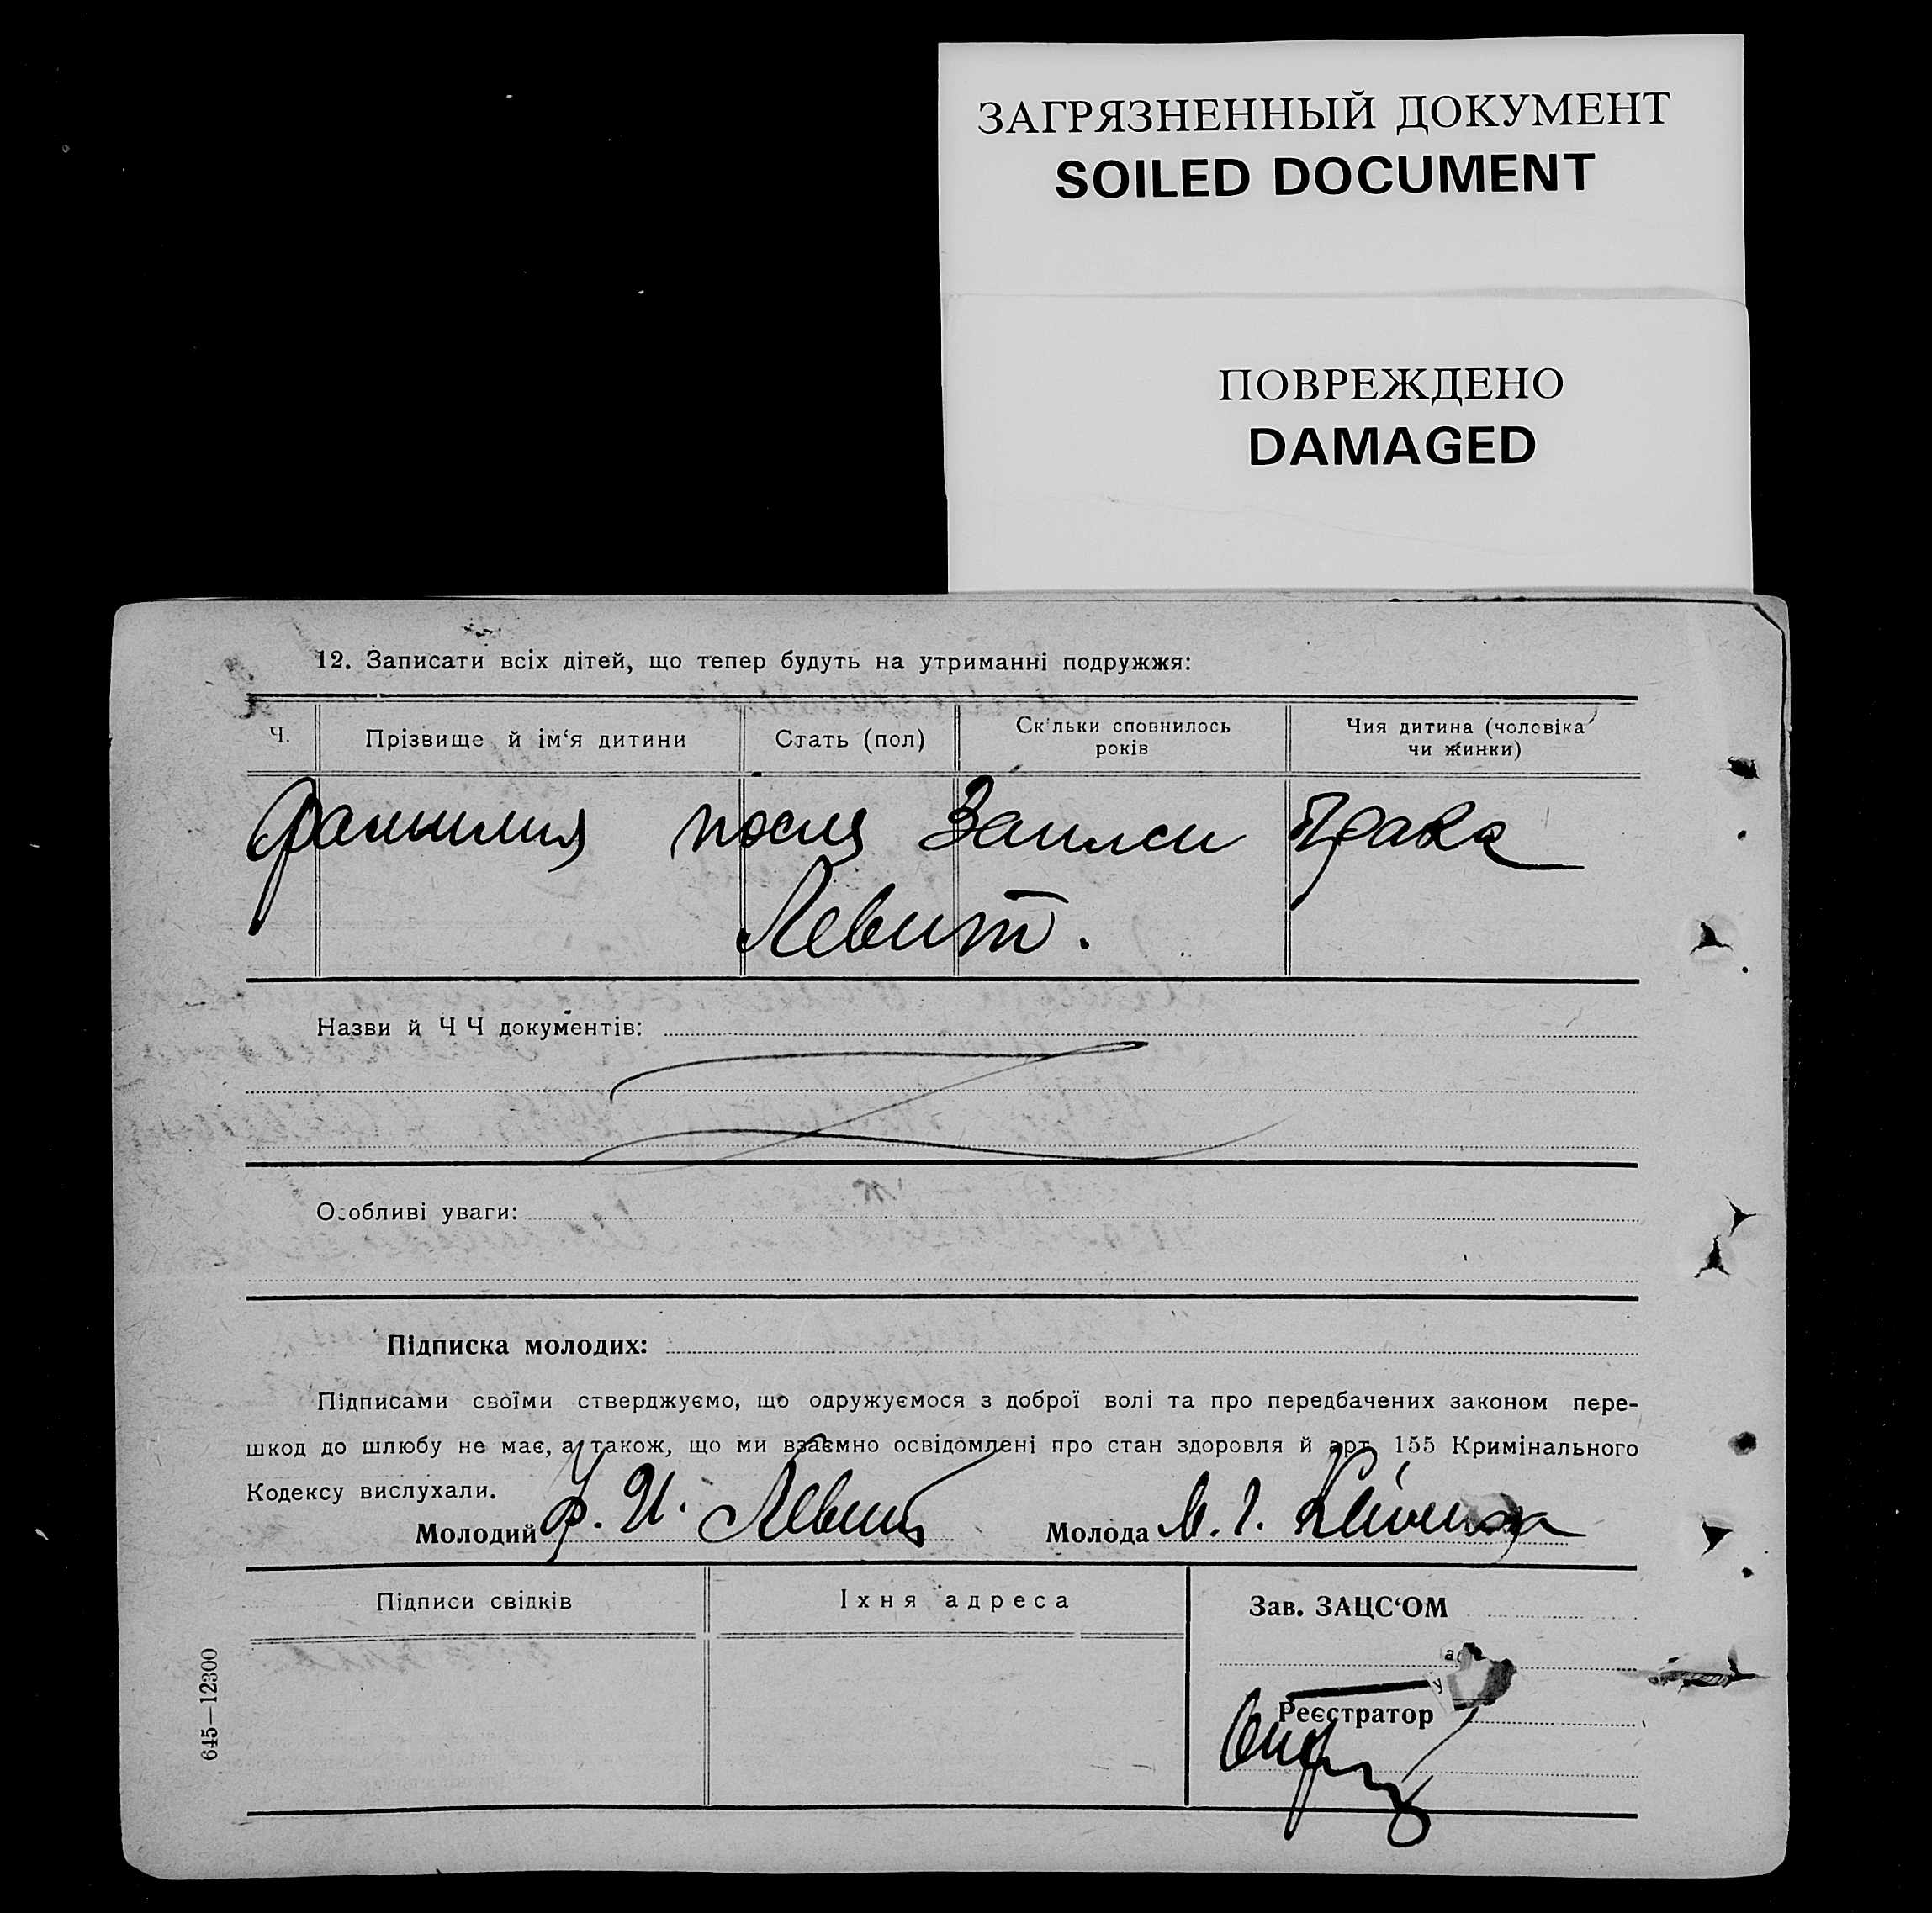 ЗАГРЯЗНЕННЫЙ ДОКУМЕНТ
SOILED DOCUMENT
ПОВРЕЖДЕНО
DAMAGED
12. Записати всіх дітей, що тепер будуть на утриманні подружжя:
Ч. Прізвище й ім‘я дитини Стать (пол) Скільки сповнилось років Чия дитина (чоловіка чи жинки)
фамилия после Записи брака
Левит.
Назви й Ч Ч документів:
Особливі уваги:
Підписка молодих:
Підписами своїми стверджуємо, що одружуємося з доброї волі та про передбачених законом пере-
шкод до шлюбу не має, а також, що ми взаємно освідомлені про стан здоровля й арт. 155 Кримінального
Кодексу вислухали.
Молодий Ф. И. Левит Молода
Підписи свідків Іхня адреса Зав. ЗАЦС‘ОМ
Реєстратор
645—12300